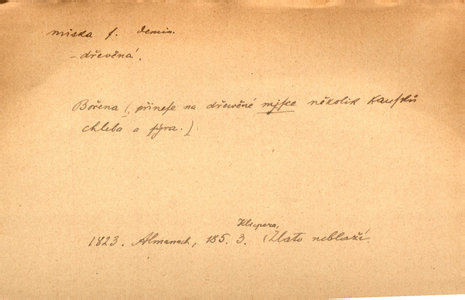 miska f. demin.
- dřevěná.
Bořena (přinese na dřewěné mjsce několik kausků
chleba a sýra.)
Klicpera,
1823. Almanach, 185. 3. (Zlato neblaží.